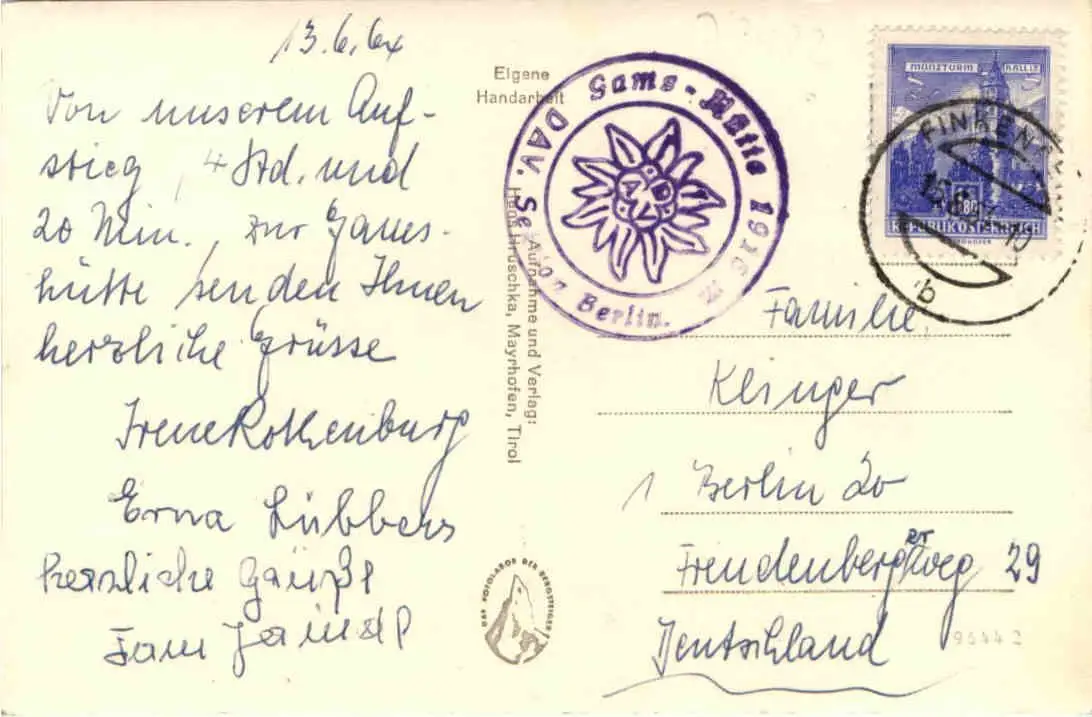 13.6.64
Von unserem Auf-
stieg, 4 Std. und
20 Min., zur Gams-
hütte senden Ihnen
herzliche Grüsse
Irene Rothenburg
Erna Lübbers
herzliche Grüße
Fam
Eigene
Handarbeit
DAV. Sektion Berlin.
Gams-Hütte 1916 m
DAV
Aufnahme und Verlag:
Hans Hruschka, Mayrhofen, Tirol
DAS FOTOLABOR DER BERGSTEIGER
MÜNZTURM HALL I. T.
80
REPUBLIK ÖSTERREICH
FINKENBERG
b
Familie
Klinger
1 Berlin 20
Freudenbergerweg 29
Deutschland